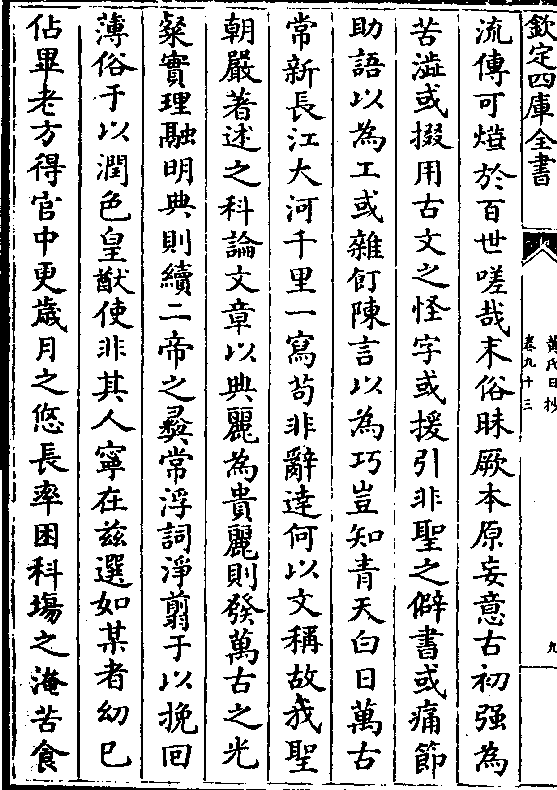 欽定四庫全書
黄氏日抄
卷九十三
九
流傳可燈於百世嗟哉末俗昧厥本原妄意古初强為
苦澁或掇用古文之怪字或援引非聖之僻書或痛節
助語以為工或雜飣陳言以為巧豈知青天白日萬古
常新長江大河千里一寫苟非辭達何以文稱故我聖
朝嚴著述之科論文章以典麗為貴麗則發萬古之光
粲實理融明典則續二帝之彛常浮詞淨翦于以挽回
薄俗于以潤色皇猷使非其人寧在兹選如某者幼已
佔畢老方得官中更歲月之悠長率困科塲之淹苦食